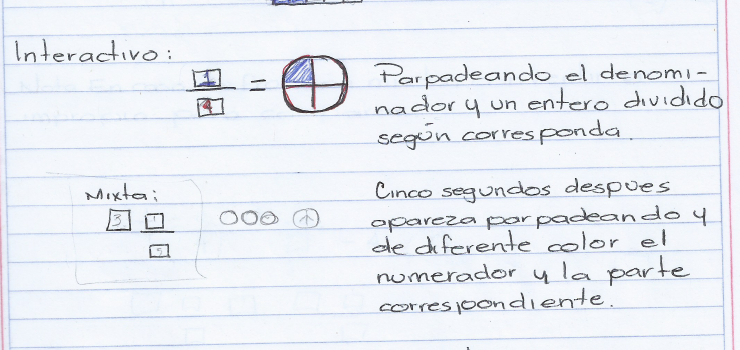 Interactivo:
1
4
=
Parpadeando el denomi-
nador y un entero dividido
según corresponda.
Mixta:
3 1
5
Cinco segundos despues
apareza parpadeando y
de diferente color el
numerador y la parte
correspondiente.